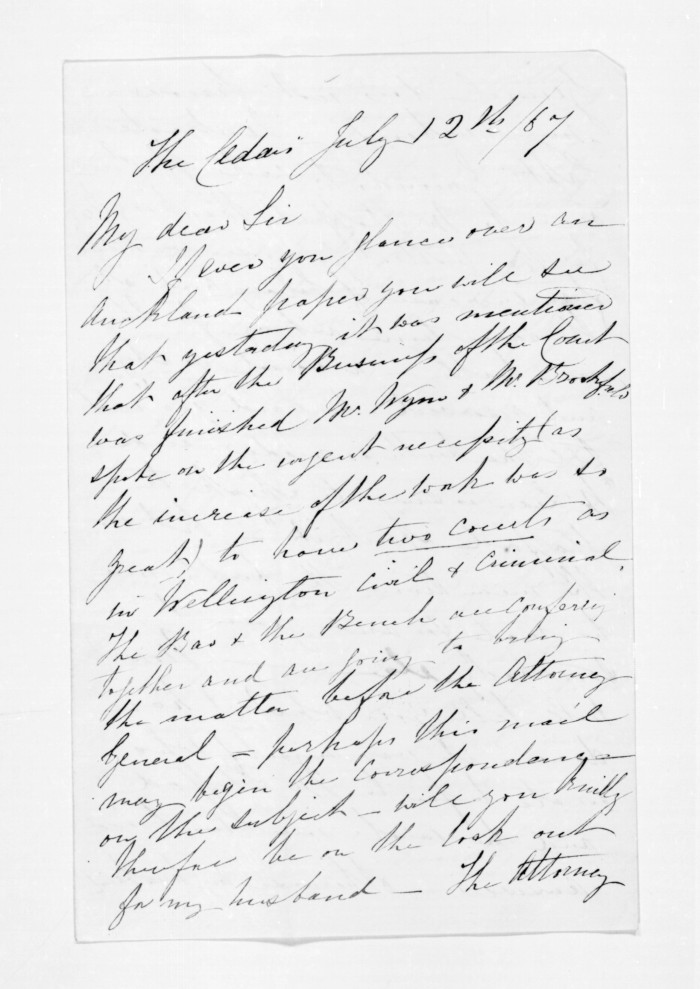 The Cedars July 12th/67
My dear Sir
If ever you glance over an
Auckland paper you will see
that yesterday it was mentioned
that after the Business of the Court
was finished Mr. Wynn & Mr. Brookfield
spoke on the urgent necessity (as
the increase of the work was so
great) to have two courts as
in Wellington Civil & Criminal.
The Bar & the Bench are Conferring
together and are going to bring
the matter before the Attorney
General – perhaps this mail
may begin the correspondence
on the subject – will you kindly
therefore be on the look out
for my husband – The Attorney